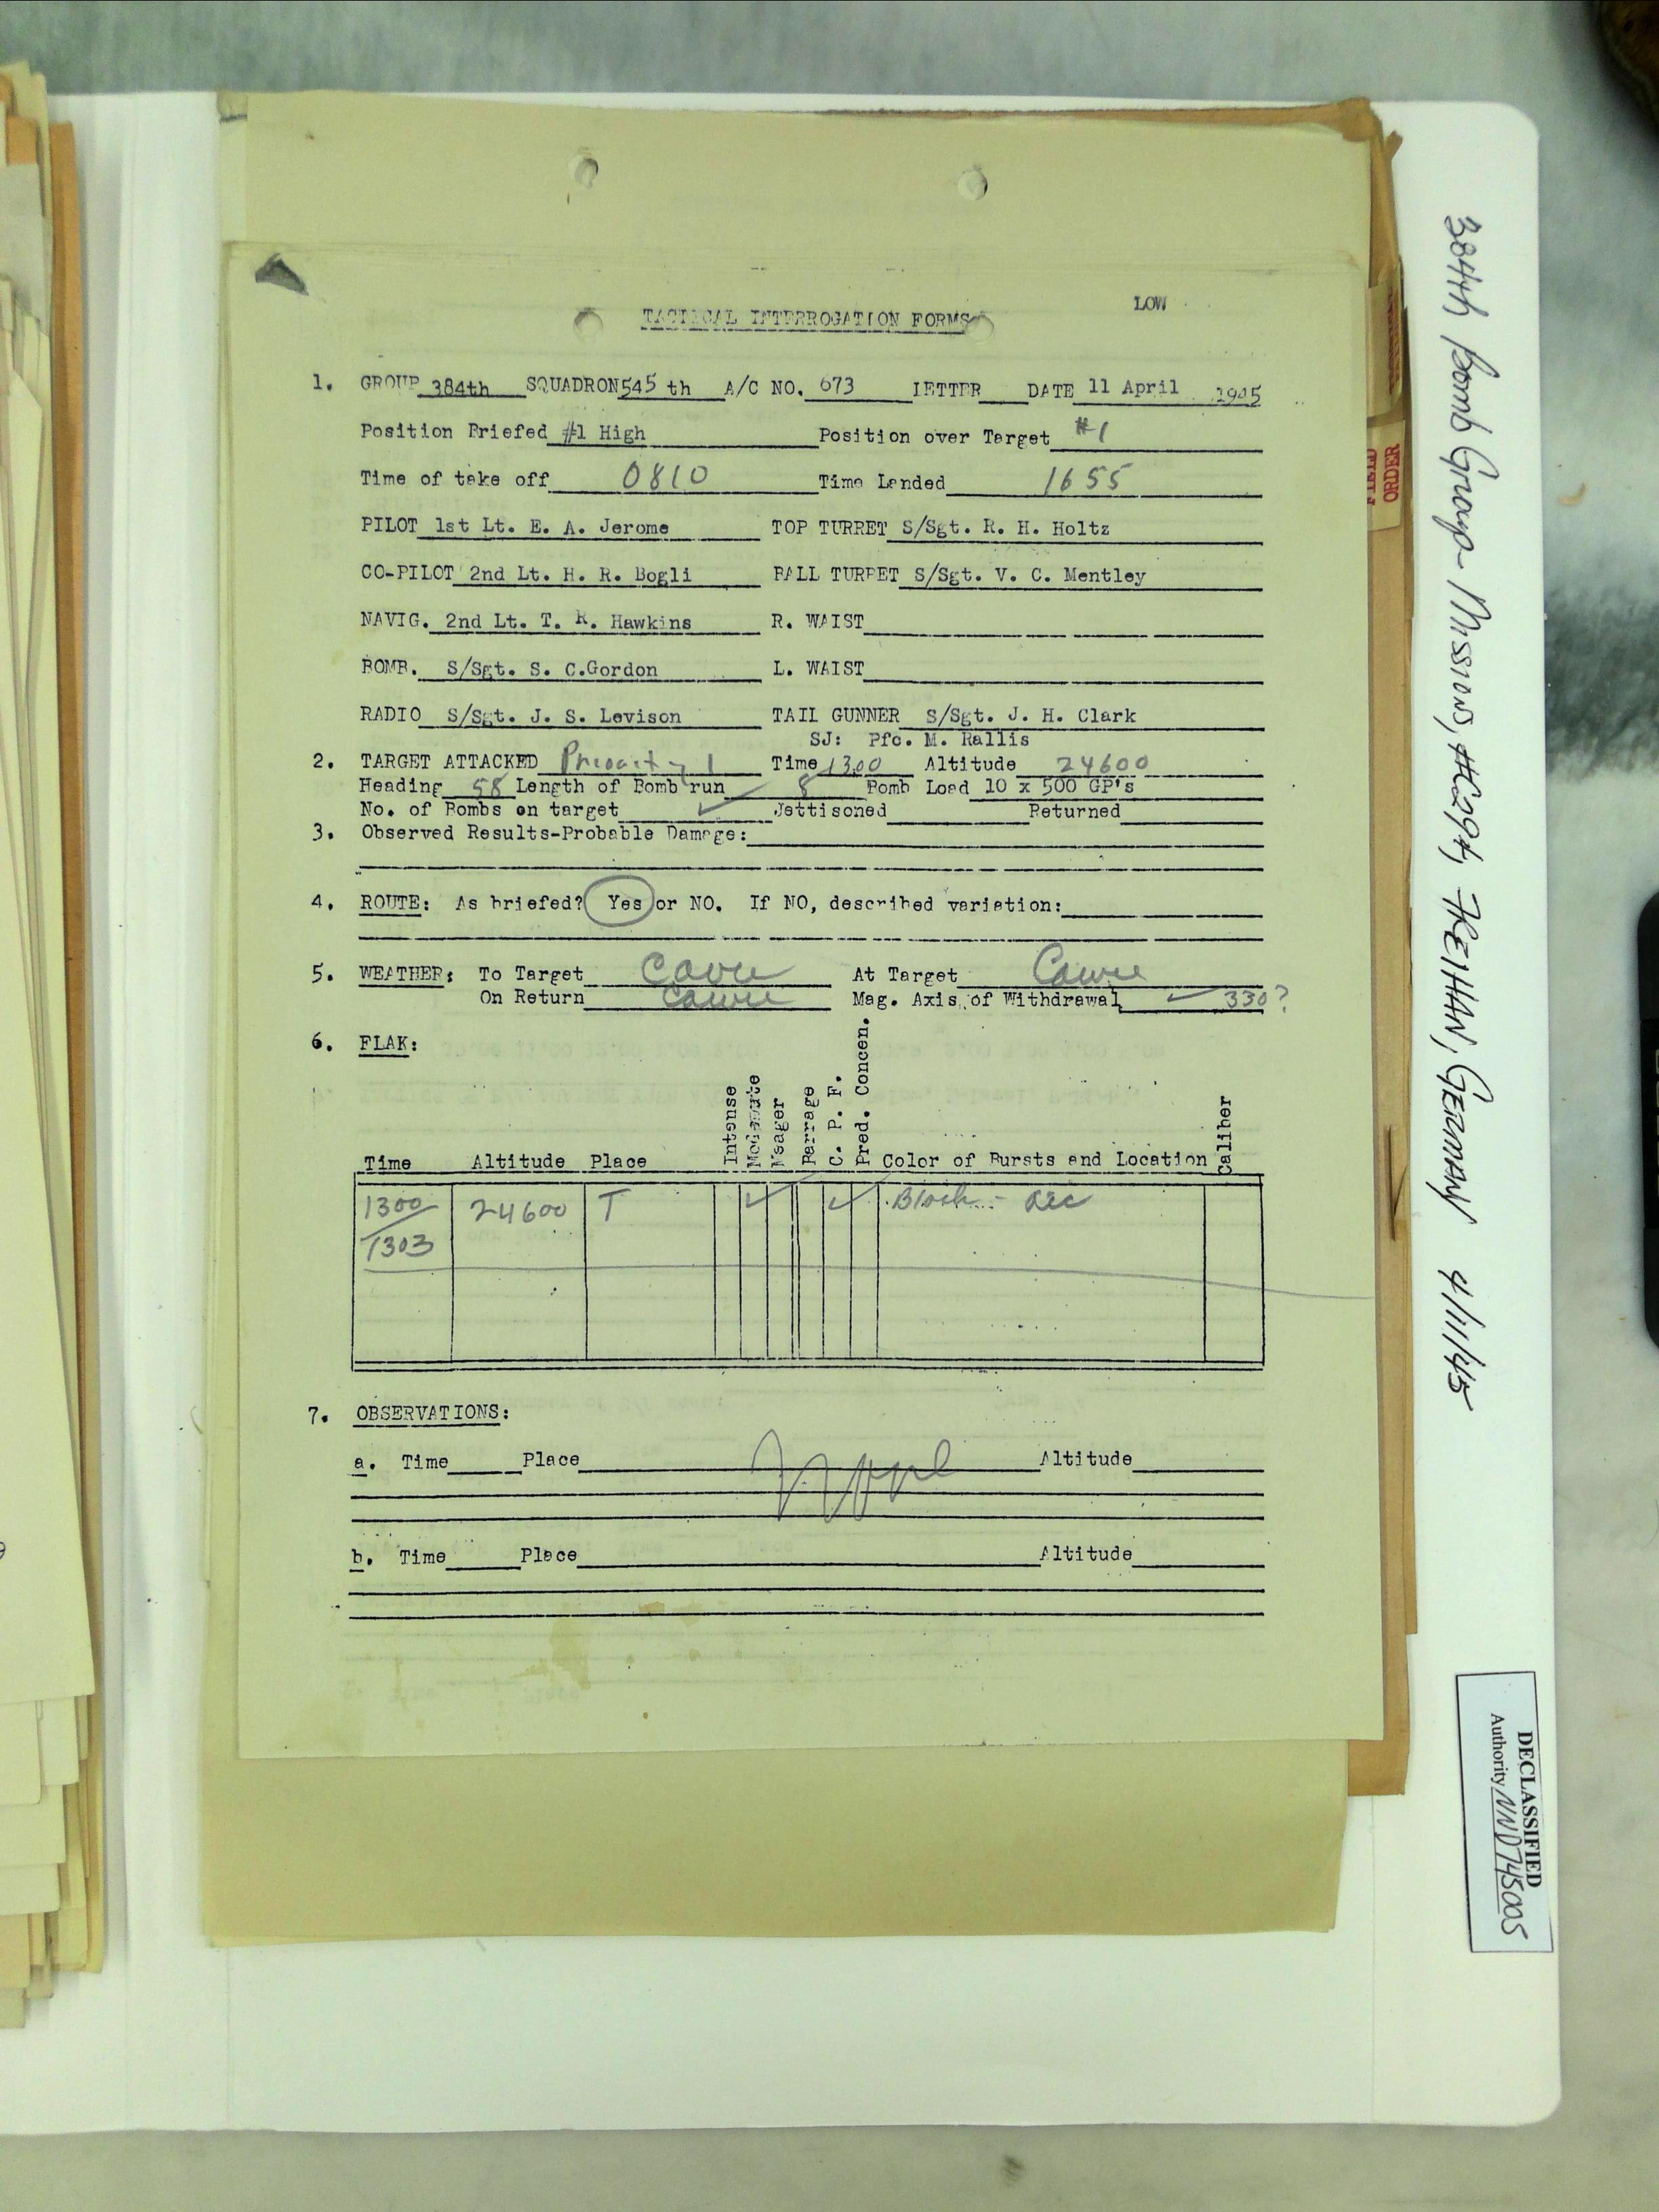 LOW
TACTICAL INTERROGATION FORMS
1. GROUP 384th SQUADRON 545 th A/C NO. 673 LETTER DATE 11 April 1945
Position Briefed #1 High Position over Target #1
Time of take off 0810 Time Landed 1655
PILOT 1st Lt. E. A. Jerome TOP TURRET S/Sgt. R. H. Holtz
CO-PILOT 2nd Lt. H. R. Bogli BALL TURRET S/Sgt. V. C. Mentley
NAVIG. 2nd Lt. T. R. Hawkins R. WAIST
BOMB. S/Sgt. S. C.Gordon L. WAIST
RADIO S/Sgt. J. S. Levison TAIL GUNNER S/Sgt. J. H. Clark
SJ: Pfc. M. Rallis
2. TARGET ATTACKED Priority 1 Time 1300 Altitude 24600
Heading 58 Length of Bomb run 8 Bomb Load 10 x 500 GP's
No. of Bombs on target ✓ Jettisoned Returned
3. Observed Results-Probable Damage:
4. ROUTE: As briefed? Yes or NO. If NO, described variation:
5. WEATHER: To Target Cavu At Target Cavu
On Return Cavu Mag. Axis of Withdrawal ✓ 330?
6. FLAK:
Time Altitude Place Intense Moderate Meager Barrage C. P. F. Pred. Concen. Color of Bursts and Location Caliber
1300 24600 T ✓ ✓ Black - acc
1303
7. OBSERVATIONS:
a. Time Place Altitude
b. Time Place Altitude
FIELD
ORDER
384th Bomb Group - Mission, #294, FREIHAN, GERMANY 4/11/45
DECLASSIFIED
Authority NND745005